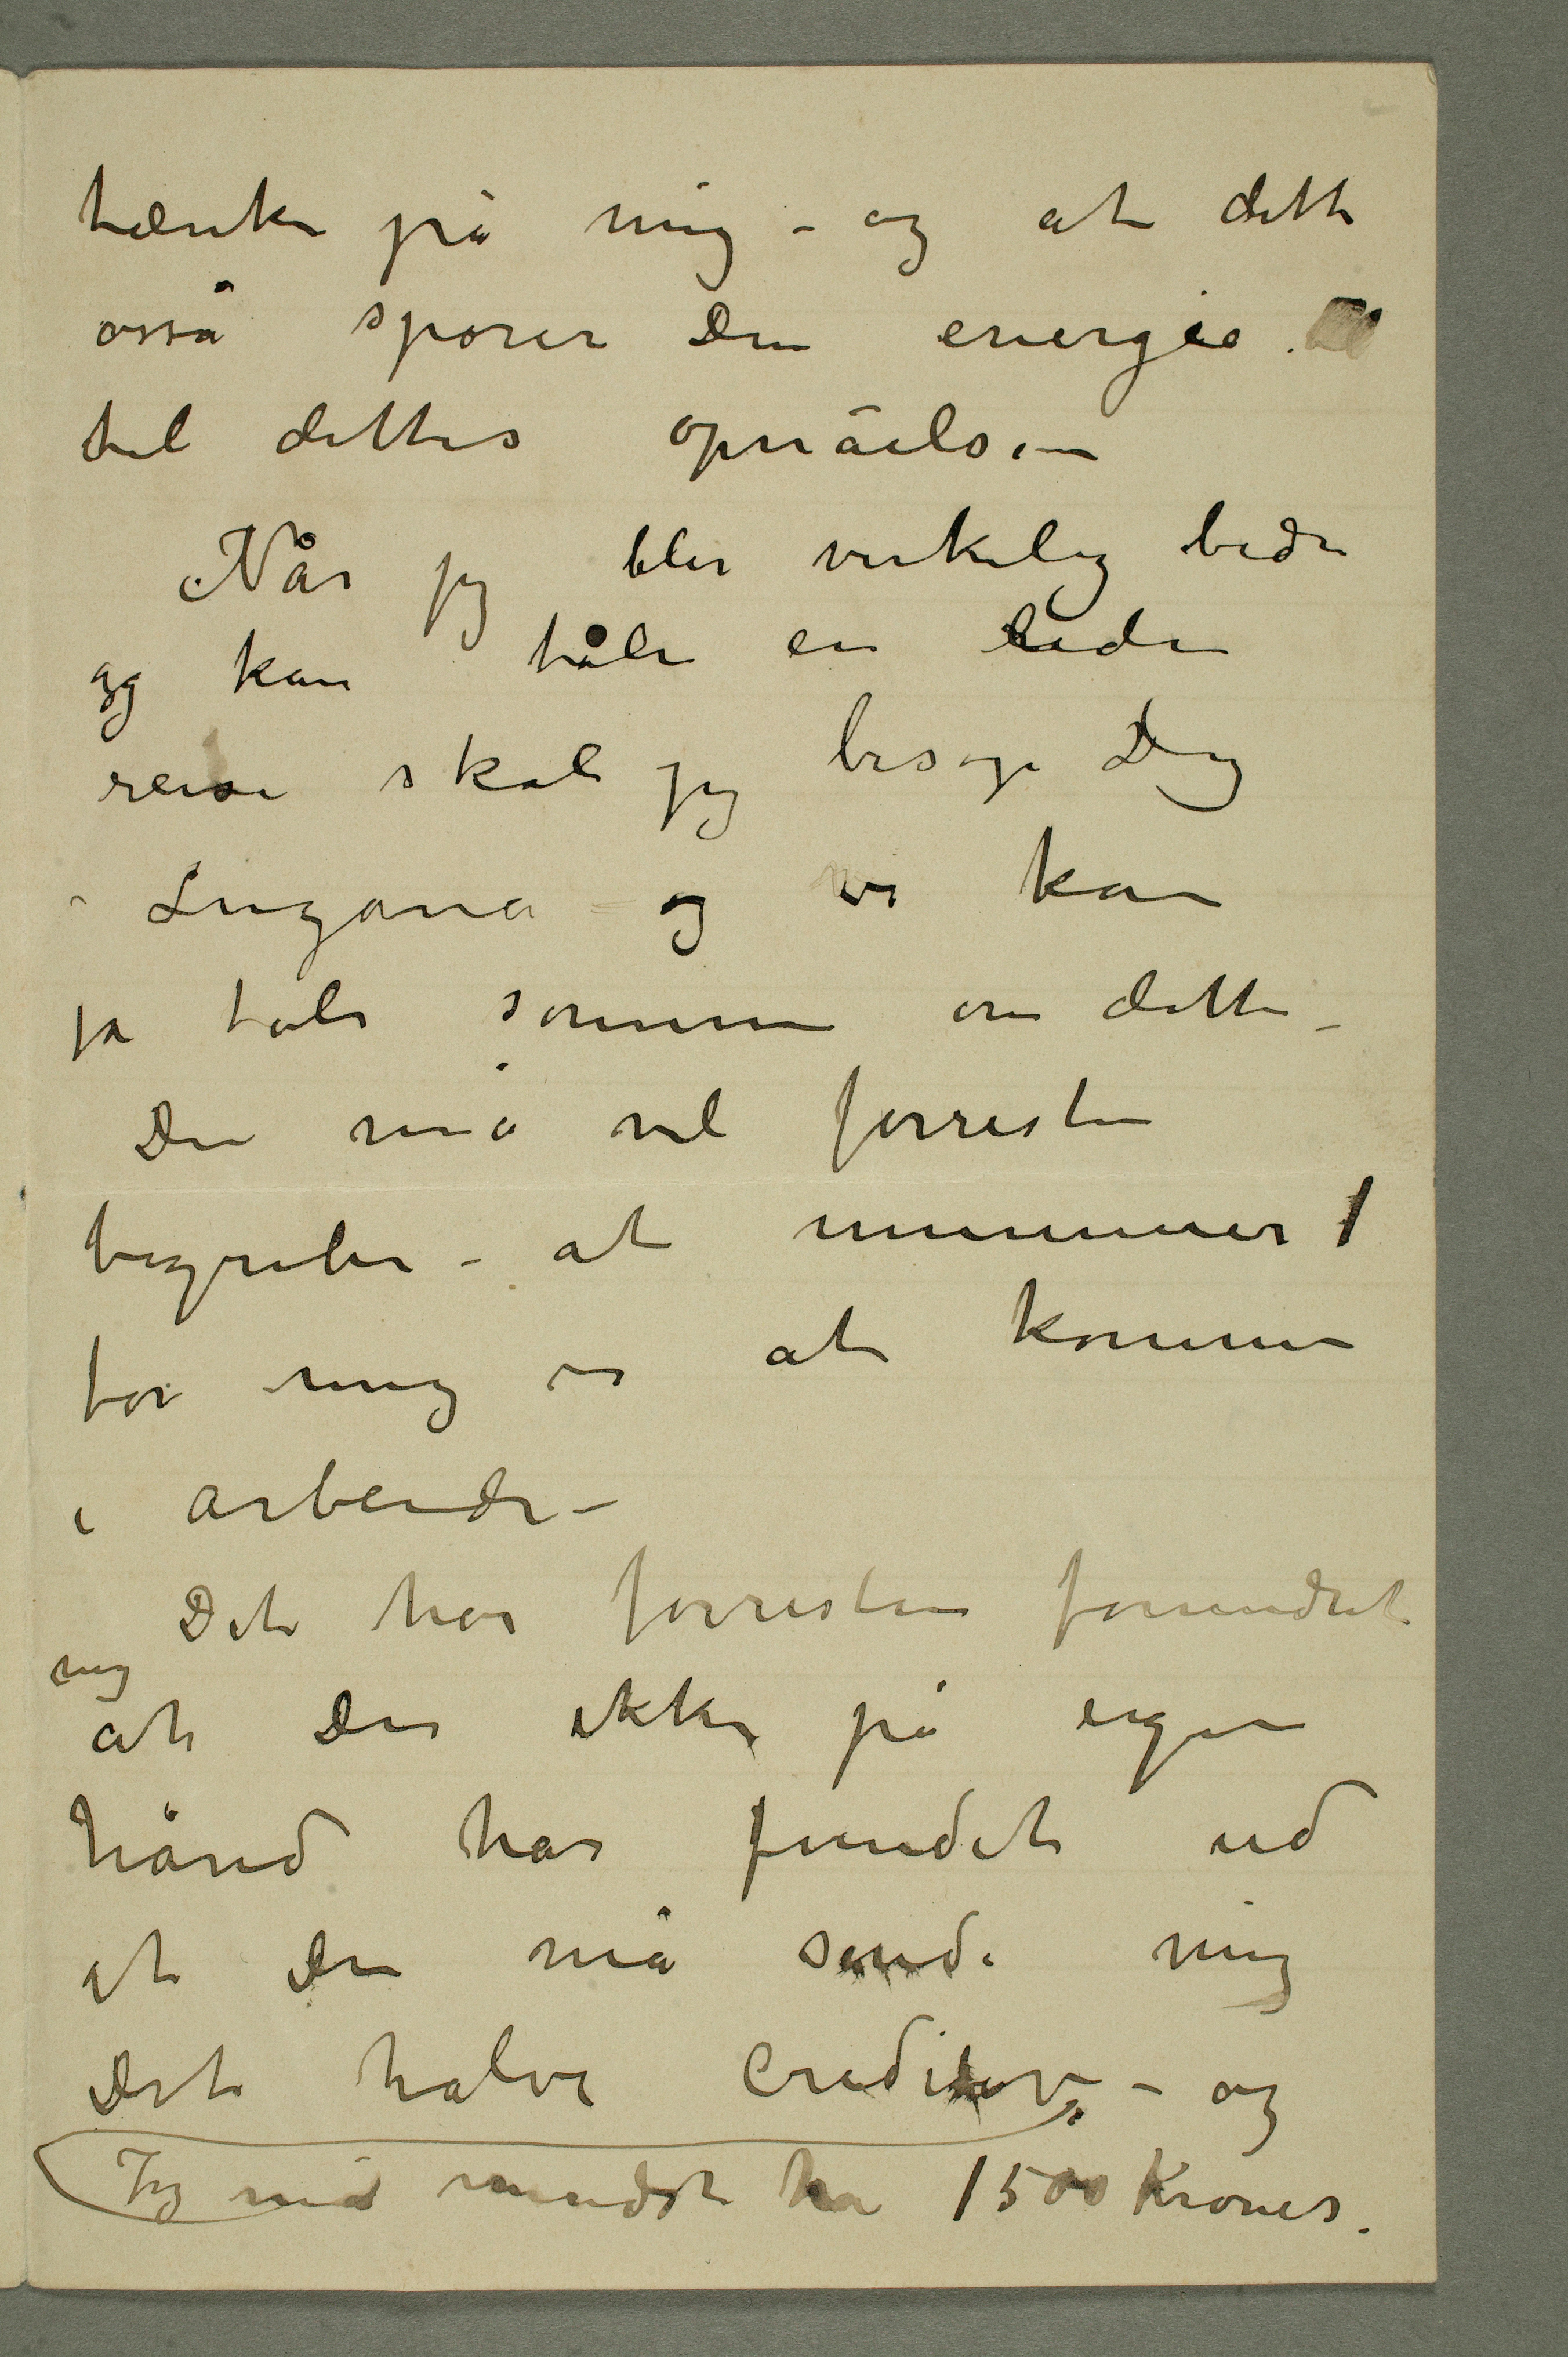 tænke på mig – og at dette
osså sporer Din energie
til dettes opnåelse –
Når jeg blir virkelig bedre
og kan tåle en liden
reise skal jeg besøge Dig
i Lugano – og vi kan
jo tale sammen om dette –
Du må vel forresten
begribe – at nummer 1
for mig er at komme
i arbeide –
Det har forresten forundret
mig
at Du ikke på egen
hånd har fundet ud
at Du må sende mig
det halve creditiv – og
Jeg må mindst ha 1500 Kroner.